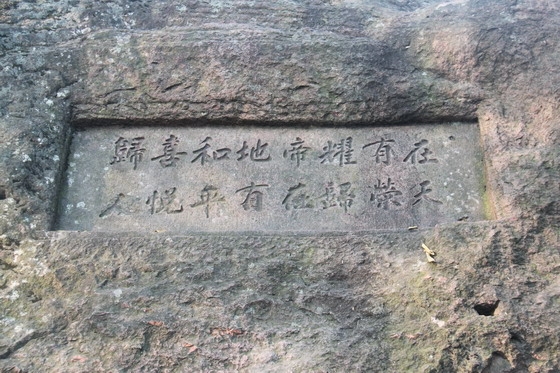 在天
有榮
耀歸
帝在
地有
和平
喜悅
歸人